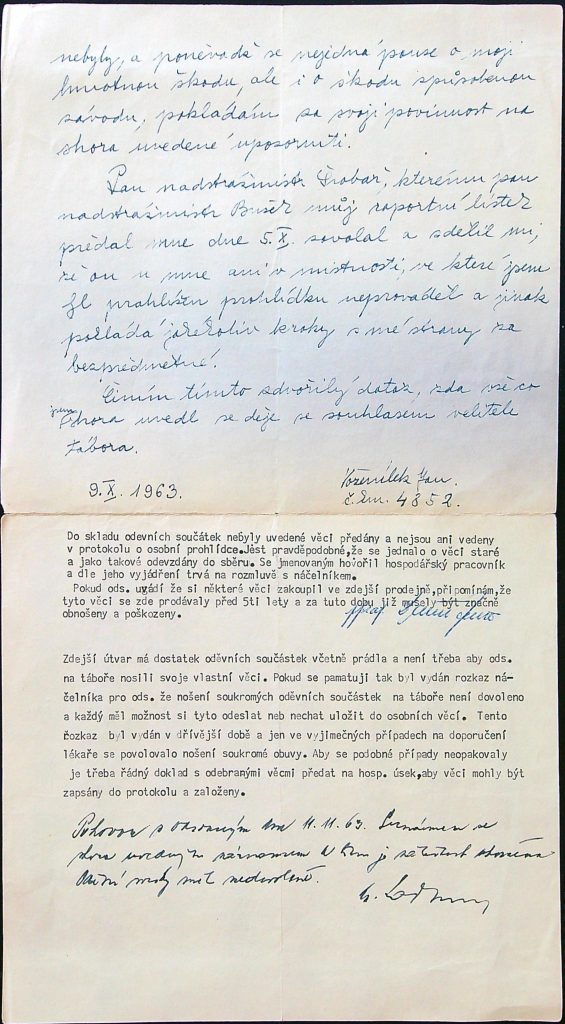 nebyly, a poněvadž se nejedná pouze o moji
hmotnou škodu, ale i o škodu způsobenou
závodu, pokládám za svoji povinnost na
shora uvedené upozorniti.
Pan nadstrážmistr Šrobař, kterému pan
nadstrážmistr Bušek můj raportní lístek
předal mne dne 5.X. zavolal a sdělil mi,
že on u mne ani v místnosti, ve které jsem
byl prohlížen prohlídku neprováděl a jinak
pokládá jakékoliv kroky s mé strany za
bezpředmětné.
Činím tímto zdvořilý dotaz, zda vše co
jsem shora uvedl se děje se souhlasem velitele
tábora.
9.X. 1963. Vozenílek Jan.
č. km. 4852.
Do skladu odevních součátek nebyly uvedené věci předány a nejsou ani vedeny
v protokolu o osobní prohlídce.Jest pravděpodobné,že se jednalo o věci staré
a jako takové odevzdány do sběru. Se jmenovaným hovořil hospodářský pracovník
a dle jeho vyjádření trvá na rozmluvě s náčelníkem.
Pokud ods. ugádí že si některé věci zakoupil ve zdejší prodejně,připomínám,že
tyto věci se zde prodávaly před 5ti lety a za tuto dobu již musely být značně
obnošeny a poškozeny.
Zdejší útvar má dostatek oděvních součástek včetně prádla a není třeba aby ods.
na táboře nosili svoje vlastní věci. Pokud se pamatuji tak byl vydán rozkaz ná-
čelníka pro ods. že nošení soukromých oděvních součástek na táboře není dovoleno
a každý měl možnost si tyto odeslat neb nechat uložit do osobních věcí. Tento
rozkaz byl vydán v dřívější době a jen ve vyjímečných případech na doporučení
lékaře se povolovalo nošení soukromé obuvy. Aby se podobné případy neopakovaly
je třeba řádný doklad s odebranými věcmi předat na hosp. úsek,aby věci mohly být
zapsány do protokolu a založeny.
Pohovor s odsouzeným dne 11.11.63. Seznámen se
shora uvedeným záznamem